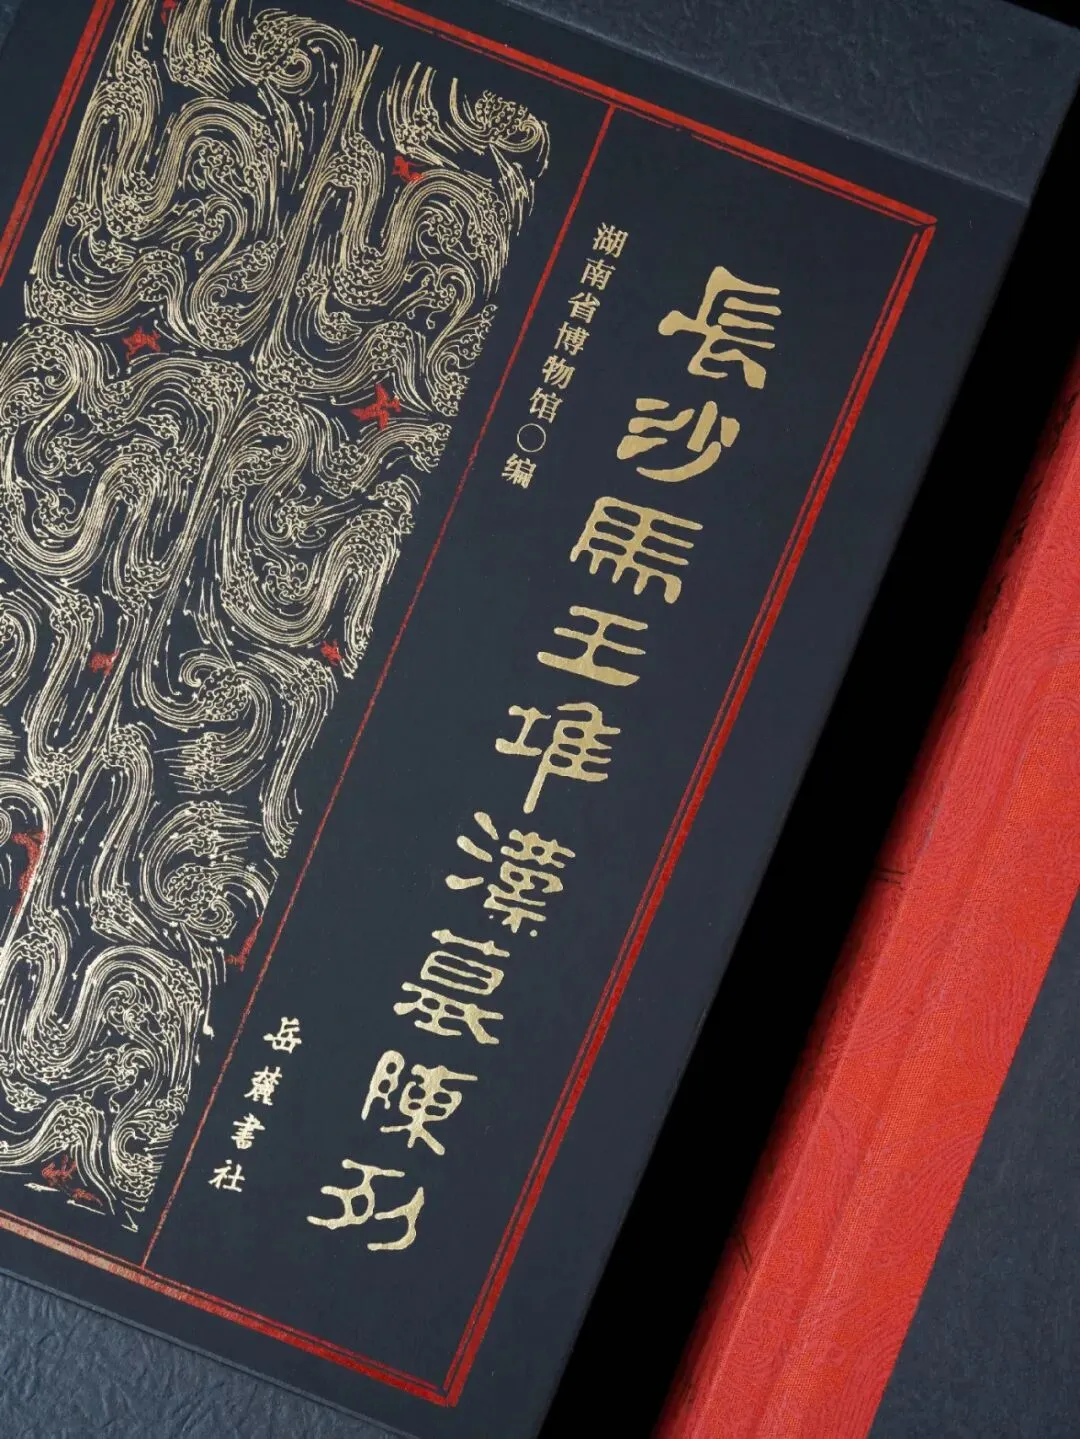 長沙馬王堆漢墓陳列
湖南省博物馆○编
岳麓書社